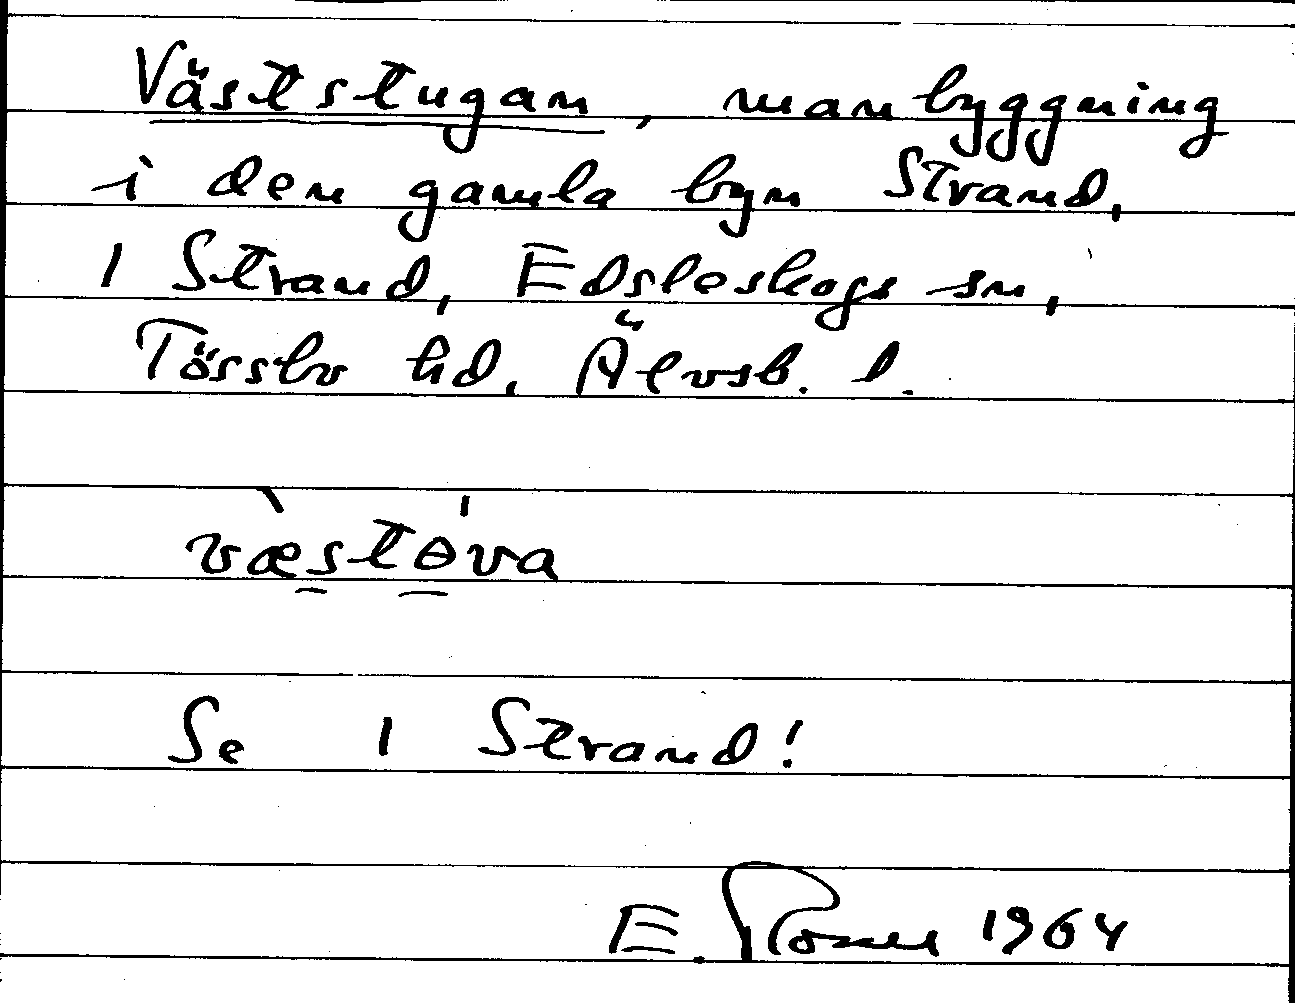 Väststugan, manbyggning
i den gamla byn Strand,
1 Strand, Edsleskogs sn,
Tössbo hd, Älvsb. l.
væ̀stɵ́va
Se 1 Strand!
E. 1964